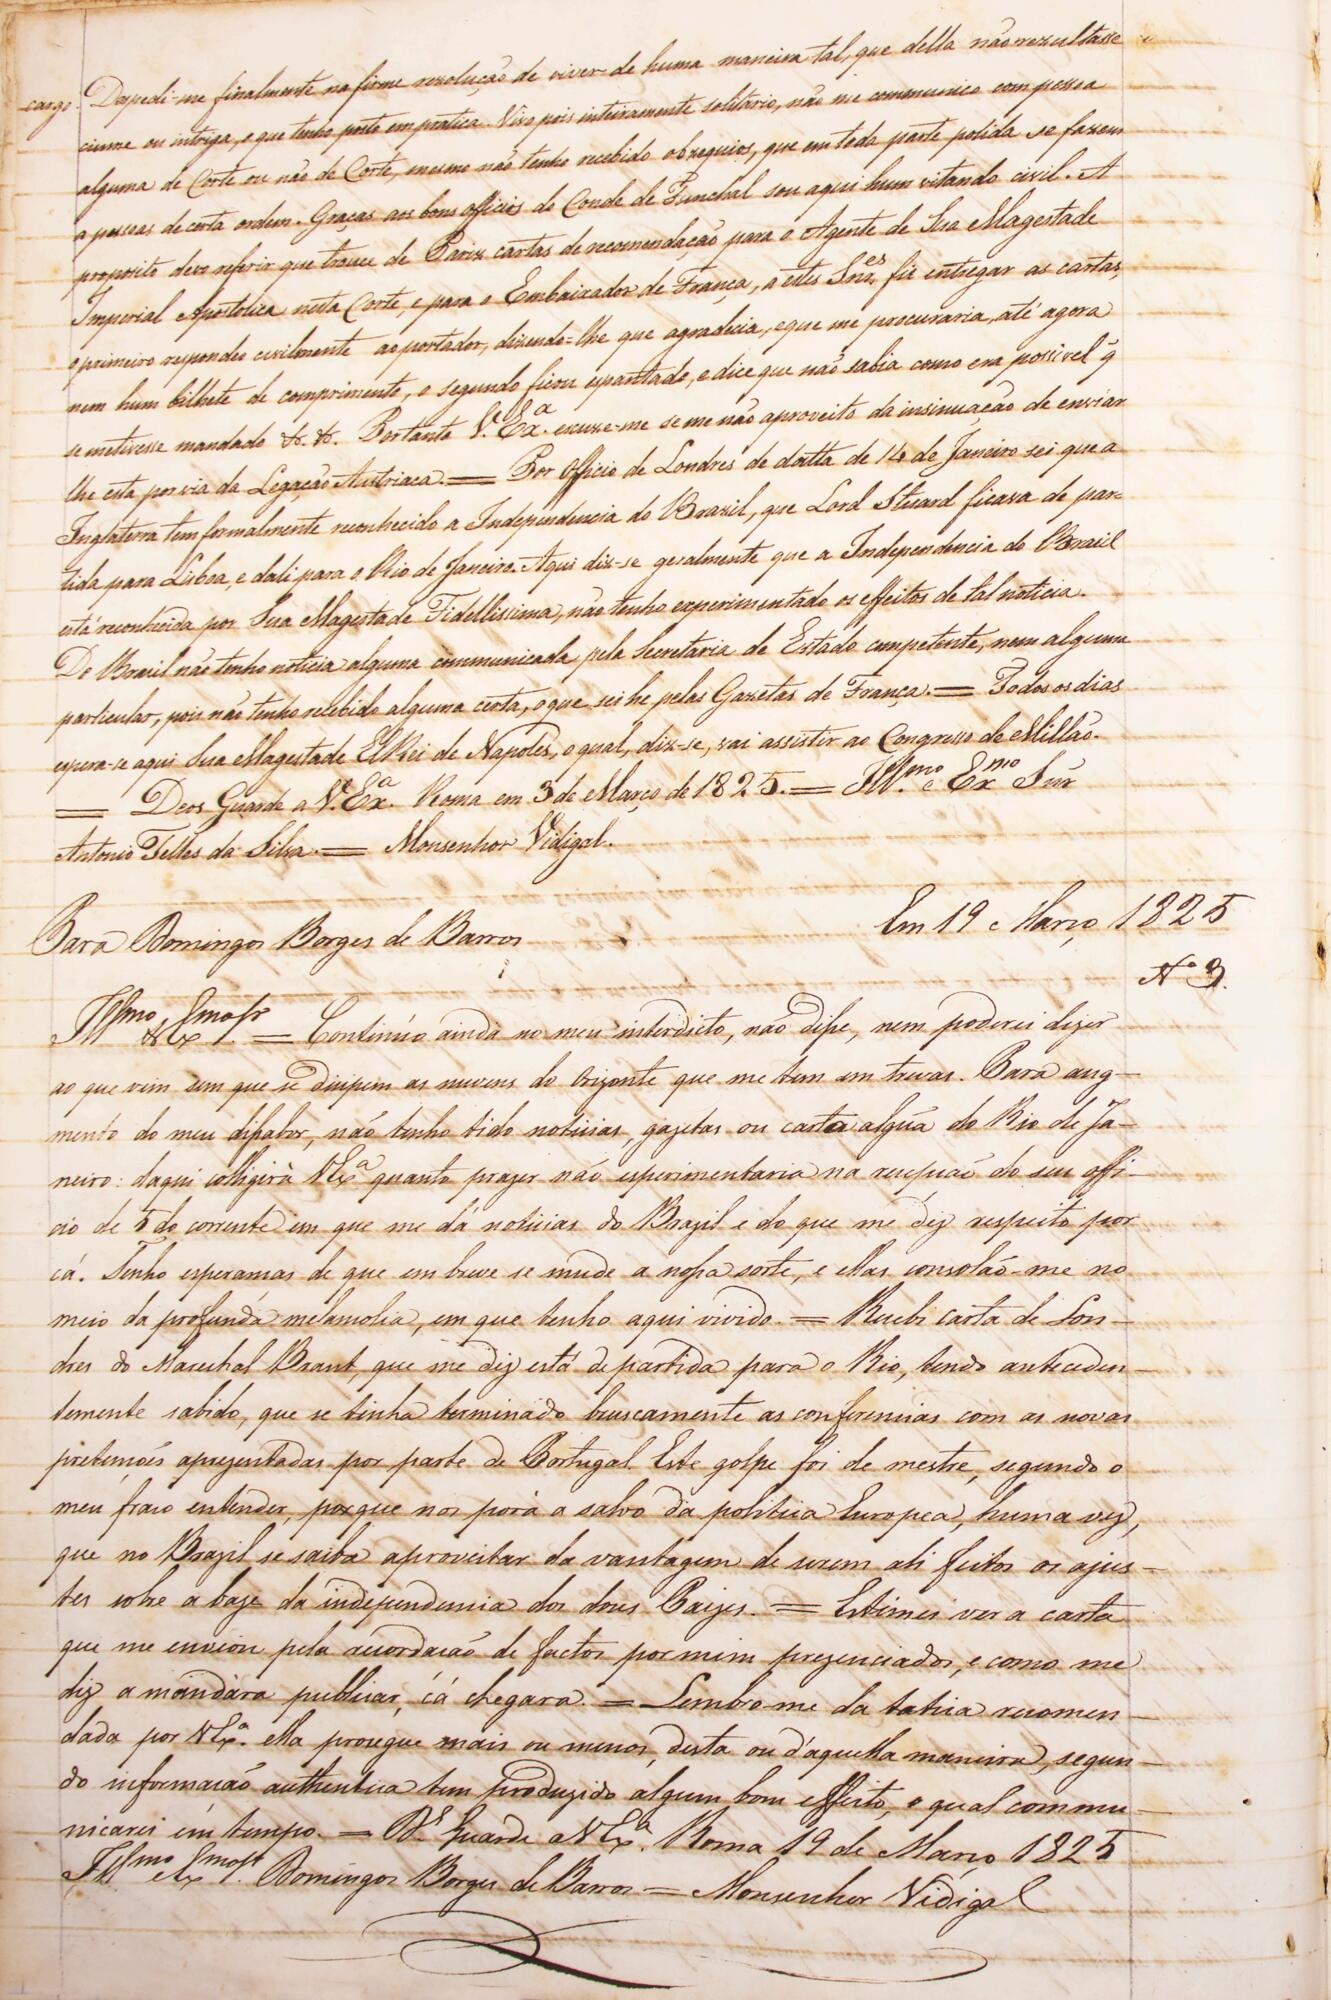 cargo. Despedi-me finalmente na firme rezolução de viver de huma maneira tal, que della não rezultasse
ciume ou intriga, o que tenho posto em pratica. Vivo pois inteiramente solitario, não me communico com pessoa
alguma de Corte ou não de Corte, mesmo não tenho recebido obzequios, que em toda parte polida se fazem
a pessoas de certa ordem. Graças aos bons officios do Conde de Funchal sou aqui hum vitando civil. A
proposito devo referir que trouce de Pariz cartas de recomendação para o Agente de Sua Magestade
Imperial Apostolica nesta Corte, e para o Embaixador de França, a estes Snr.es fiz entregar as cartas,
o primeiro respondeo civilmente ao portador, dizendo=lhe que agradecia, e que me procuraria, até agora
nem hum bilhete de comprimento, o segundo ficou espantado, e dice que não sabia como era possivel q̃
se metivesse mandado &. &. Portanto V. Ex.a escuze-me se me não aproveito da insinuação de enviar
lhe esta por via da Legação Austriaca. = Por Officio de Londres de datta de 14 de Janeiro sei que a
Inglaterra tem formalmente reconhecido a Independencia do Brazil, que Lord Stuard ficava de par-
tida para Lisboa, e dali para o Rio de Janeiro. Aqui diz-se geralmente que a Independencia do Brazil
está reconhecida por Sua Magestade Fidellissima, não tenho experimentado os effeitos de tal noticia.
Do Brazil não tenho noticia alguma communicada pela Secretaria de Estado competente, nem alguma
particular, pois não tenho recebido alguma certa, o que sei he pelas Gazetas de França. = Todos os dias
espera-se aqui Sua Magestade ElRei de Napoles, o qual, diz-se, vai assistir ao Congresso de Millão.
= Deos Guarde a V. Ex.a. Roma em 3 de Março de 1825. = Ill.mo e Ex.mo Snr̃
Antonio Telles da Silva. = Monsenhor Vidigal.
Para Domingos Borges de Barros Em 19 Março 1825
N.o 3.
Ill.mo & Ex.mo Sr. = Continúo ainda no meu interdicto, não disse, nem poderei dizer
ao que vim sem que se dicipem as nuvens do orizonte que me tem em trevas. Para aug-
mento do meu dissabor, não tenho tido noticias, gazetas ou carta algũa do Rio de Ja-
neiro: daqui colligirà V Ex.a quanto prazer não esperimentaria na recepção do seu offi-
cio de 5 do corrente em que me dá noticias do Brazil e do que me diz respeito por
cá. Tenho esperanças de que em breve se mude a nossa sorte, e ellas consolão-me no
meio da profunda melancolia, em que tenho aqui vivido. = Recebi carta de Lon-
dres do Marechal Brant, que me diz está de partida para o Rio, tendo anteceden-
temente sabido, que se tinha terminado bruscamente as conferencias com as novas
pretenções aprezentadas por parte de Portugal. Este golpe foi de mestre, segundo o
meu fraco entender, porque nos porà a salvo da politica Europea, huma vez,
que no Brazil se saiba aproveitar da vantagem de serem ali feitos os ajus-
tes sobre a baze da independencia dos dous Paizes. = Estimei ver a carta
que me enviou pela recordação de factos por mim prezenciados, e como me
diz a mandàra publicar, cá chegara. = Lembro-me da tatica recomen-
dada por V Ex.a. ella prosegue mais ou menos, desta ou d'aquella maneira, segun-
do informação authentica tem produzido algum bom effeito, o qual commu-
nicarei em tempo. = D.s Guarde a V Ex.a Roma 19 de Março 1825
Ill.mo e Ex.mo Sr. Domingos Borges de Barros = Monsenhor Vidigal